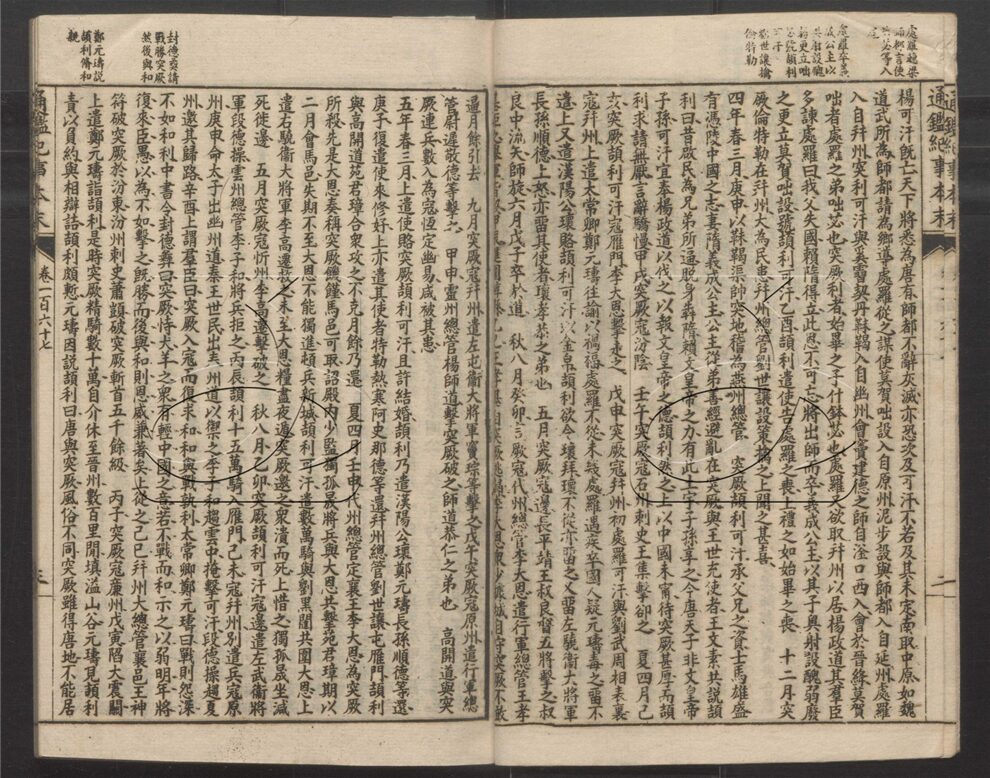 處羅
師都言使
處羅卒義
成公主以
更立咄
苾號頡利
可汗
劉世讓擒
倫特勒
通鑑紀事本末
楊可汗既亡天下將悉為唐有師都不辭灰滅亦恐次及可汗不若及其未定南取中原如魏
道武所為師都請為鄉導處羅從之謀使莫賀咄設入自原州泥步設與師都入自延州處羅
入自并州突利可汗與奚霫契丹靺鞨入自幽州會竇建德之師自滏口西入會於晉絳莫賀
咄者處羅之弟咄苾也突厥利者始畢之子什鉢苾也處羅又欲取并州以居楊政道其羣臣
多諫處羅曰我父失國賴隋得立此恩不可忘將出師而卒義成公主以其子奧射設醜弱廢
之更立莫賀咄設號頡利可汗乙酉頡利遣使告處羅之喪上禮之如始畢之喪 十二月突
厥倫特勒在并州大為民患并州總管劉世讓設策擒之上聞之甚喜
四年春三月庚申以靺鞨渠帥突地稽為燕州總管 突厥頡利可汗承父兄之資士馬雄盛
有憑陵中國之志妻隋義成公主公主從弟善經避亂在突厥與王世充使者王文素共說頡
利曰昔啟民為兄弟所逼脫身奔隋賴文皇帝之力有此土宇子孫享之今唐天子非文皇帝
子孫可汗宜奉楊政道以伐之以報文皇帝之德頡利然之上以中國未寧待突厥甚厚而頡
利求請無厭言辭驕慢甲戌突厥寇汾陰 壬午突厥寇石州刺史王集擊卻之 夏四月己
亥突厥頡利可汗寇雁門李大恩擊走之 戊申突厥寇并州初處羅可汗與劉武周相表裏
寇并州上遣太常卿鄭元璹往諭以禍福處羅不從未幾處羅遇疾卒國人疑元璹毒之留不
遣上又遣漢陽公瓌賂頡利可汗以金帛頡利欲令瓌拜瓌不從亦留之又留左驍衛大將軍
長孫順德上怒亦留其使者瓌孝恭之弟也 五月突厥寇邊長平靖王叔良督五將擊之叔
良中流矢師旋六月戊子卒於道 秋八月癸卯突厥寇代州總管李大恩遣行軍總管王孝
封德彝請
戰勝突厥
然後與和
鄭元璹說
頡利脩和
親
逼月餘引去 九月突厥寇并州遣左屯衛大將軍竇琮等擊之戊午突厥寇原州遣行軍總
管尉遲敬德等擊之 甲申靈州總管楊師道擊突厥破之師道恭仁之弟也 高開道與突
厥連兵數入為寇恆定幽易咸被其患
五年春三月上遣使賂突厥頡利可汗且許結婚頡利乃遣漢陽公瓌鄭元璹長孫順德等還
庚子復遣使來修好上亦遣其使者特勒熱寒阿史那德等還并州總管劉世讓屯雁門頡利
與高開道苑君璋合衆攻之不克月餘乃還 夏四月壬申代州總管定襄王李大恩為突厥
所殺先是大恩奏稱突厥饑饉馬邑可取詔殿内少監獨孤晟將兵與大恩共擊苑君璋期以
二月會馬邑失期不至大恩不能獨進頓兵新城頡利可汗遣數萬騎與劉黑闥共圍大恩上
遣右驍衛大將軍李高遷救之未至大恩糧盡夜遁突厥邀之衆潰而死上惜之獨孤晟坐減
死徙邊 五月突厥寇忻州李高遷擊破之 秋八月乙卯突厥頡利可汗寇邊遣左武衛將
軍段德操雲州總管李子和將兵拒之丙辰頡利十五萬騎入雁門己未寇并州别遣兵寇原
州庚申命太子出幽州道秦王世民出秦州道以禦之李子和趨雲中掩擊可汗段德操趨夏
州邀其歸路辛酉上謂羣臣曰突厥入寇而復求和和與戰孰利太常卿鄭元璹曰戰則怨深
不如和利中書令封德彝曰突厥恃犬羊之衆有輕中國之意若不戰而和示之以弱明年將
復來臣愚以為不如擊之既勝而後與和則恩威兼著矣上從之己巳并州大總管襄邑王神
符破突厥於汾東汾州刺史蕭顗破突厥斬首五千餘級 丙子突厥寇廉州戊寅陷大震關
上遣鄭元璹詣頡利是時突厥精騎數十萬自介休至晉州數百里間填溢山谷元璹見頡利
責以負約與相辯詰頡利頗慙元璹因說頡利曰唐與突厥風俗不同突厥雖得唐地不能居
通鑑紀事本末
卷一百六十七